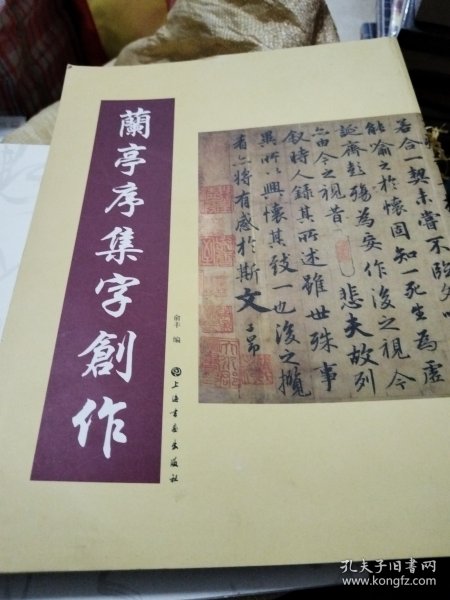 蘭亭序集字創作
俞丰 编
上海书画出版社
若合一契未嘗不臨文嗟
能喻之於懷固知一死生為虛
誕齊彭殤為妄作後之視今
亦由今之視昔 悲夫故列
叙時人錄其所述雖世殊事
異所以興懷其致一也後之攬
者亦將有感於斯文 子昂
孔夫子旧书网
www.kongfz.com